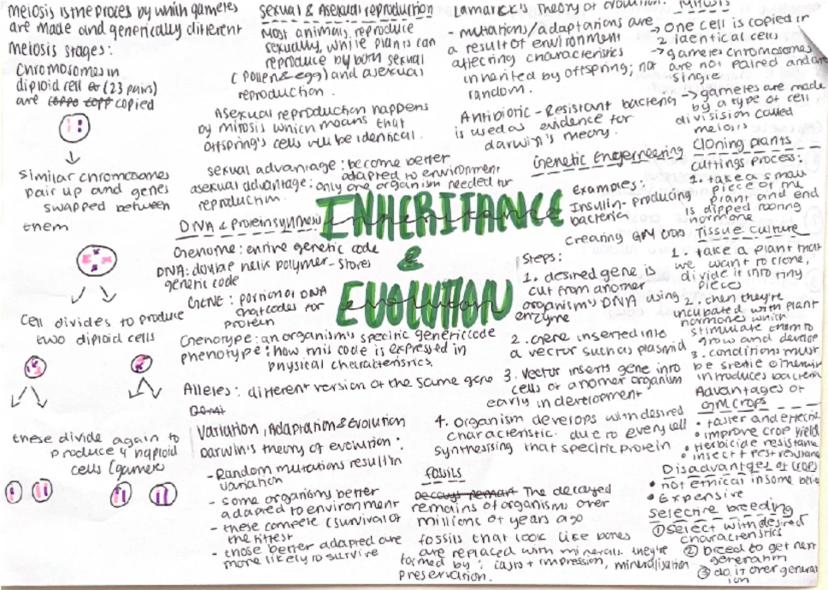 meiosis is the process by which gametes
are made and genetically different
meiosis stages:
Chromosomes in
diploid cell (23 pairs)
are copied
similar chromosomes
pair up and genes
swapped between
them
Cell divides to produce
two diploid cells
these divide again to
produce 4 haploid
cells (gametes
sexual & Asexual reproduction
Most animals reproduce
sexually, while plants can
reproduce by both sexual
(pollen & egg) and asexual
reproduction.
Asexual reproduction happens
by mitosis which means that
offspring's cells will be identical.
sexual advantage: become better
adapted to environment
asexual advantage: only one organism needed for
reproduction.
DNA & Protein synthesis
Genome: entire genetic code
DNA: double helix polymer - stores
genetic code
Gene: portion of DNA
that codes for
protein
Genotype: an organism's specific genetic code
phenotype: how this code is expressed in
physical characteristics.
Alleles: different version of the same gene
Variation, Adaptation & Evolution
Darwin's theory of evolution:
- Random mutations result in
variation
- some organisms better
adapted to environment
- these compete (survival of
the fittest
- those better adapted are
more likely to survive
INHERITANCE
&
EVOLUTION
inheritance
evolution
Lamarck's Theory of evolution:
- mutations/adaptations are
a result of environment
affecting characteristics
inherited by offspring; not
random.
Antibiotic-Resistant bacteria
is used as evidence for
darwin's theory.
Genetic Engerneering
examples:
Insulin-producing
bacteria
creating GM crops
Steps:
1. desired gene is
cut from another
organism's DNA using
enzyme
2. Gene inserted into
a vector such as plasmid
3. Vector inserts gene into
cells of another organism
early in development
4. Organism develops with desired
characteristic due to every cell
synthesising that specific protein
Fossils
The decayed
remains of organisms over
millions of years ago
fossils that look like bones
are replaced with minerals. they're
formed by: casts + impression, mineralisation
preservation.
Mitosis
→ One cell is copied in
2 identical cells
→ gametes chromosomes
are not paired and are
single
→ gametes are made
by a type of cell
divisision called
meiosis
Cloning plants
cuttings process:
1. take a small
piece of the
plant and end
is dipped
hormone
Tissue culture
1. take a plant that
we want to clone,
divide it into tiny
pieces
2. then they're
incubated with plant
hormones which
stimulate them to
grow and develop
3. conditions must
be sterile otherwise
introduces bacteria
Advantages of
GM crops
• faster and
• improve crop yield
• Herbicide resistance
• insect + pest resistance
Disadvantages of crops
• not ethical in some
• Expensive
Selective breeding
① Select with desired
characteristics
② breed to get next
generation
③ do it over generat
ion